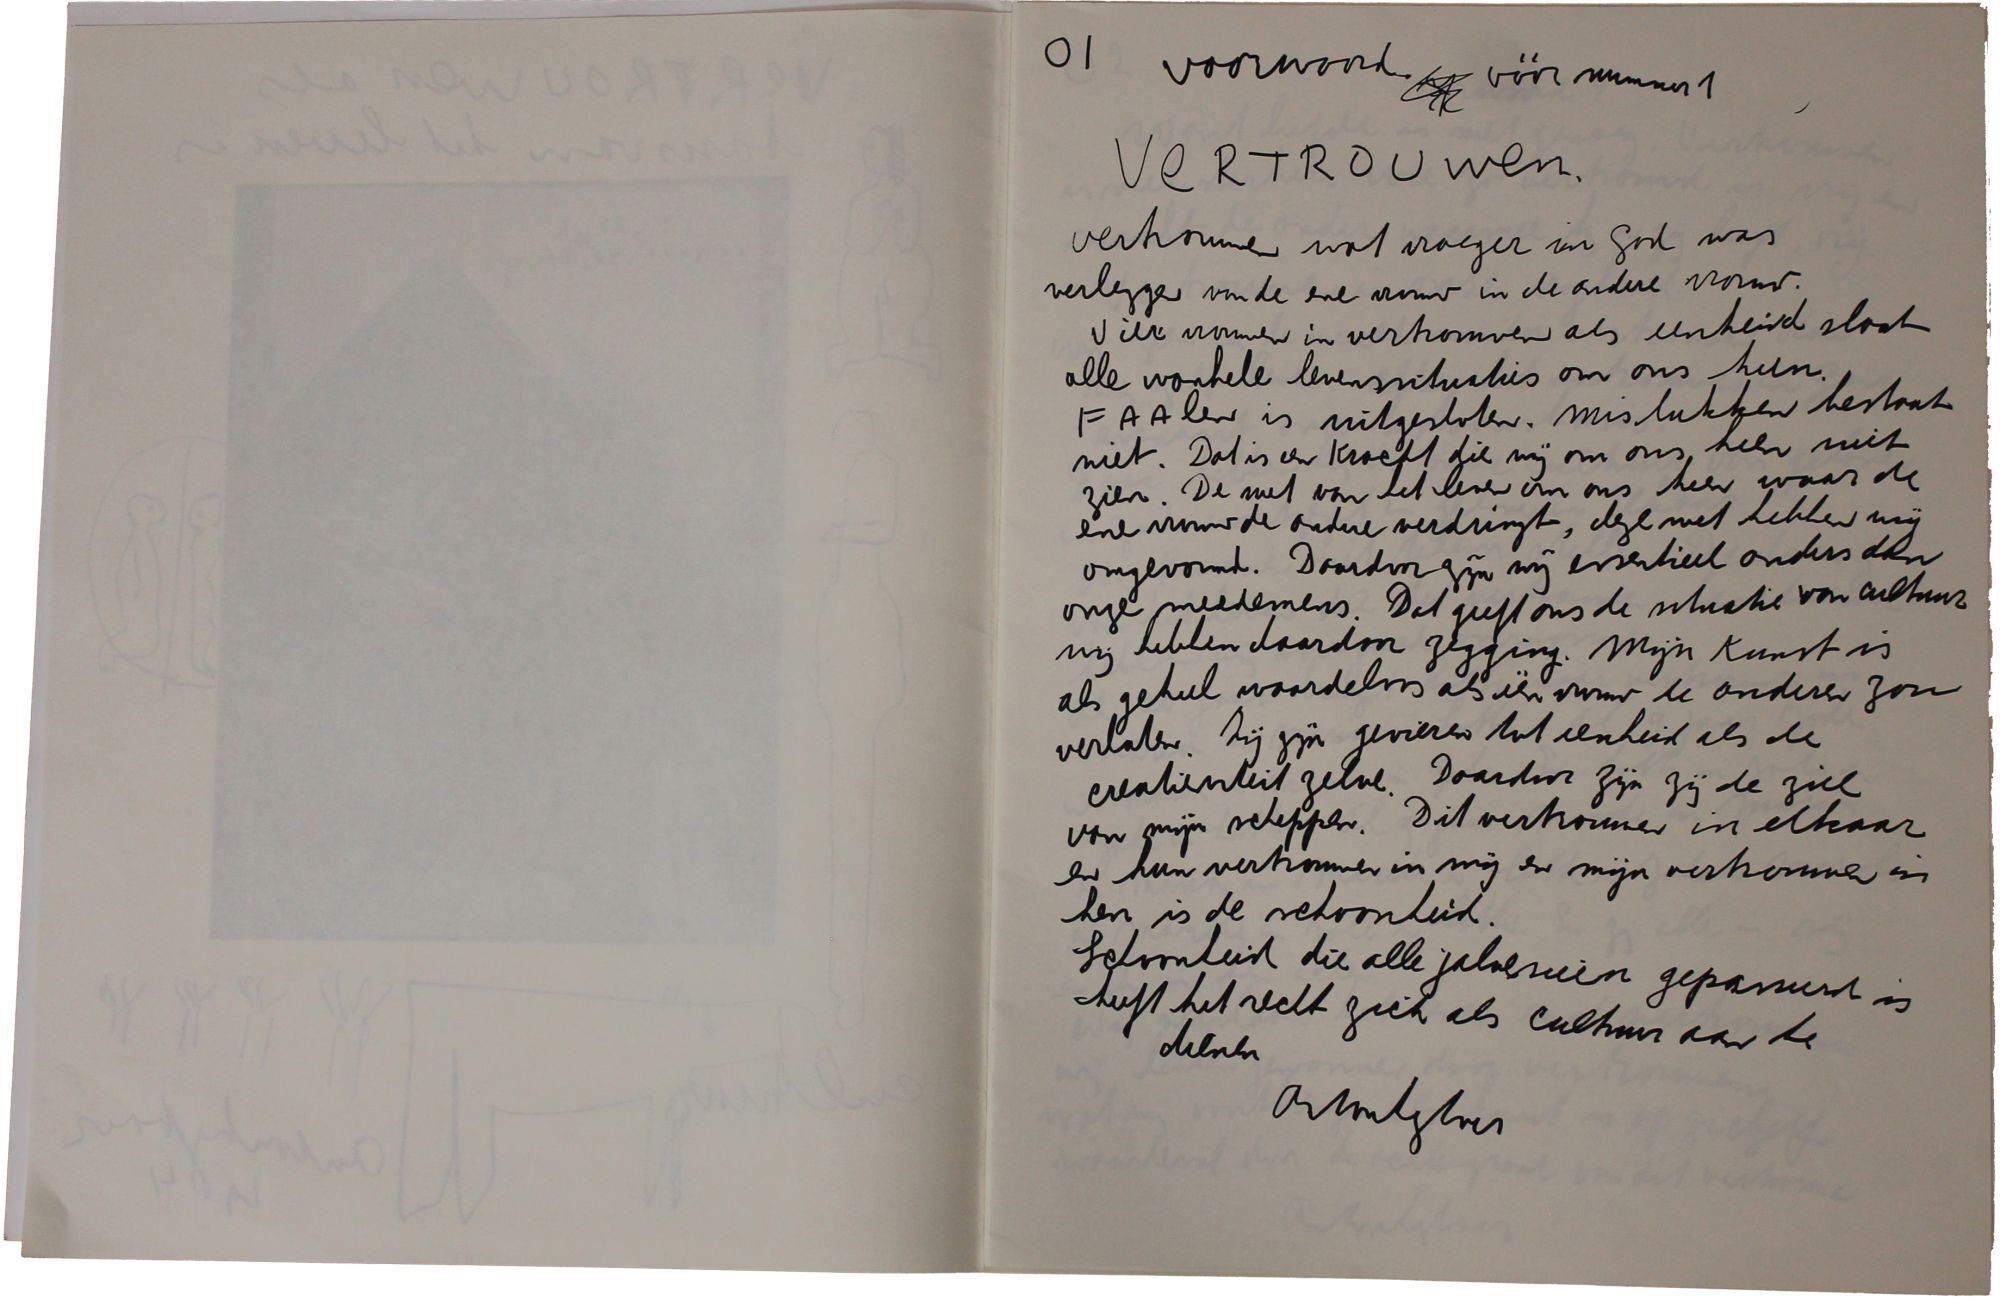 01 voorwoord. vóór nummer 1
VERTROUWEN.
vertrouwen wat vroeger in God was
verleggen van de ene vrouw in de andere vrouw.
Vier vrouwen in vertrouwen als eenheid slaat
alle wankele levenssituaties om ons heen.
FAALen is uitgesloten. Mislukken bestaat
niet. Dat is een kracht die wij om ons heen niet
zien. De wet van het leven om ons heen waar de
ene vrouw de andere verdringt, deze wet hebben wij
omgevormd. Daardoor zijn wij essentieel anders dan
onze meedemens. Dat geeft ons de situatie van cultuur
wij hebben daardoor zegging. Mijn Kunst is
als geheel waardeloos als één vrouw de anderen zou
verlaten. Zij zijn gevieren tot eenheid als de
creativiteit zelve. Daardoor zijn zij de ziel
van mijn scheppen. Dit vertrouwen in elkaar
en hun vertrouwen in mij en mijn vertrouwen in
hen is de schoonheid.
Schoonheid die alle jaloezieën gepasseerd is
heeft het recht zich als cultuur aan te
dienen